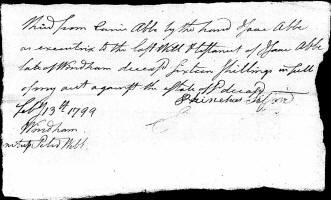 Rec'd from Eunice Abbe by the hand Isaac Abbe
as executrix to the last Will & testament of Isaac Abbe
late of Windham deceasd Sixteen Shillings in full
of my acct against the estate of sd deceasd
Phinehas
Feby 13th 1799
Windham
Peter Webb